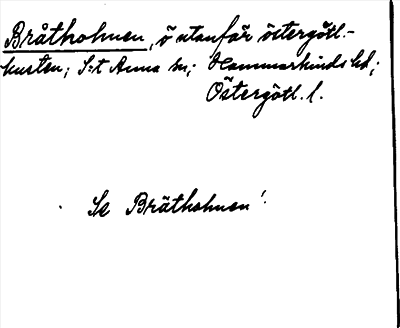 Bråtholmen, ö utanför östergötl.-
kusten; S:t Anna sn; Hammarkinds hd;
Östergötl. l.
Se Brätholmen!